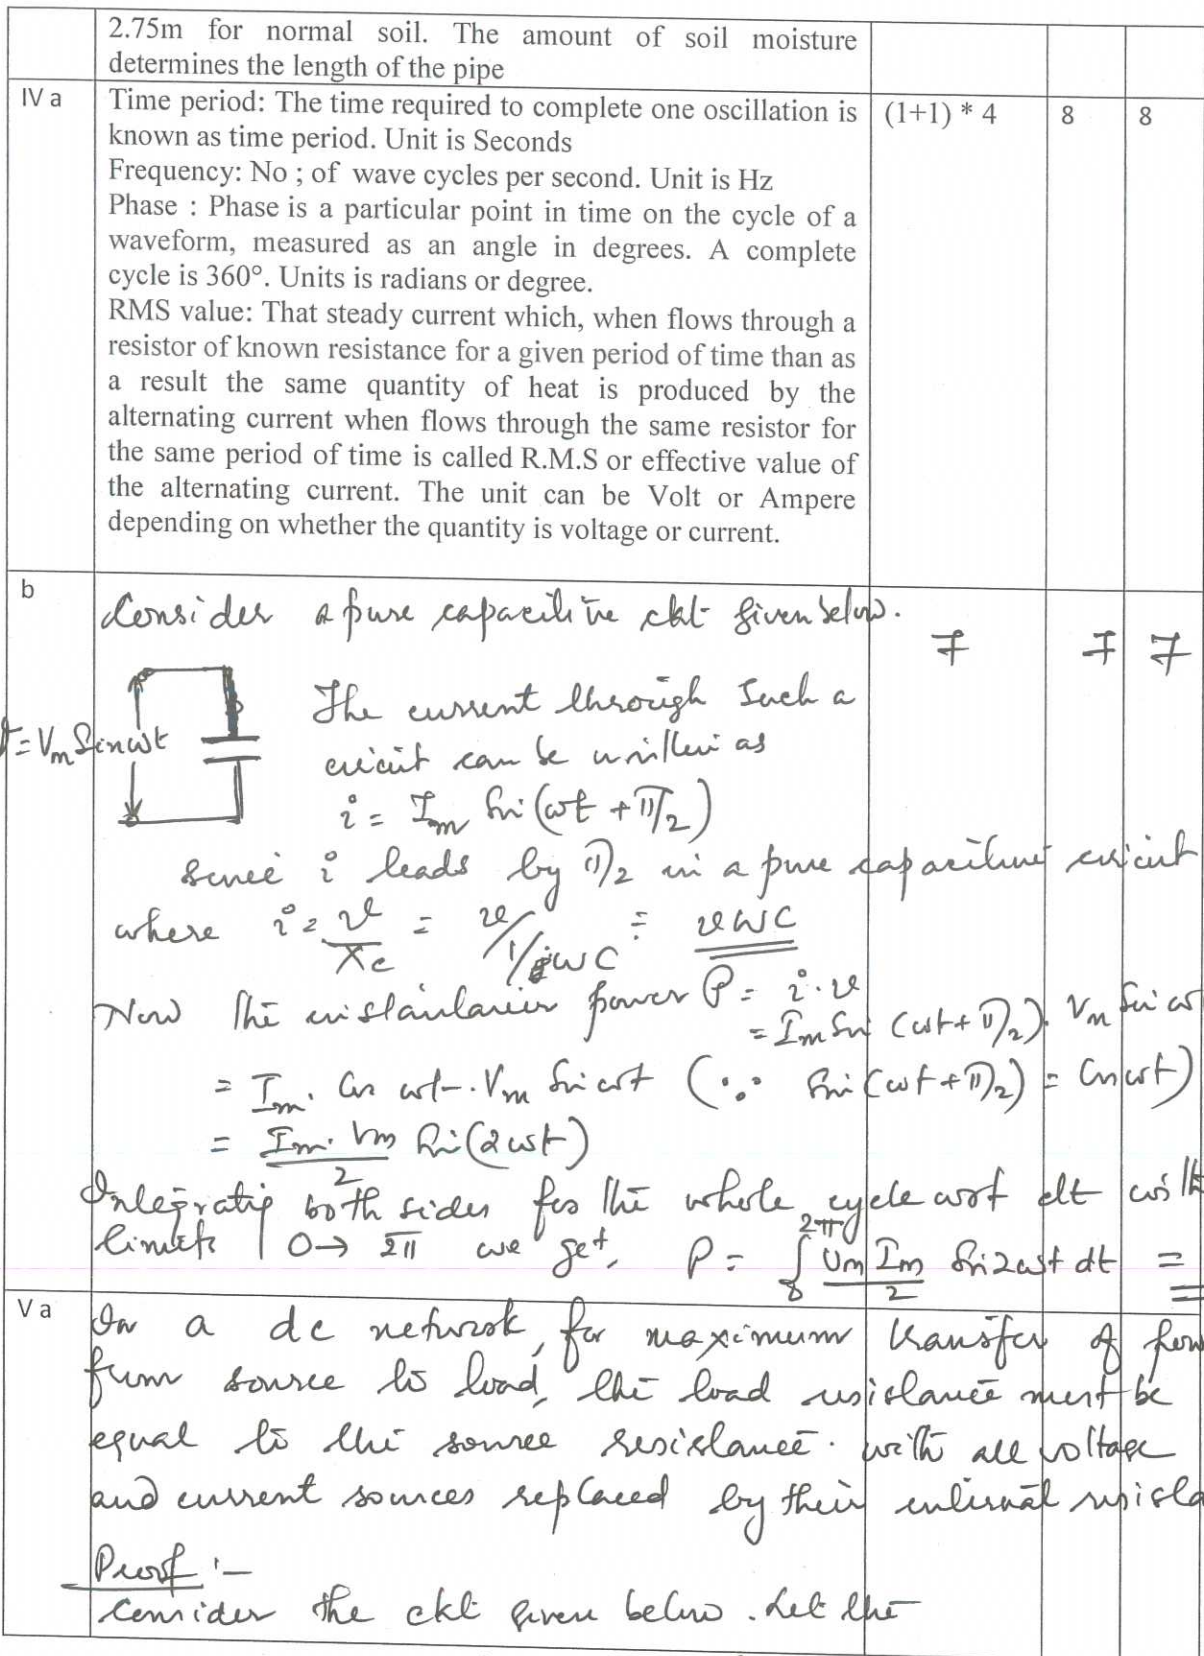 2.75m for normal soil. The amount of soil moisture
determines the length of the pipe
IV a
Time period: The time required to complete one oscillation is
known as time period. Unit is Seconds
(1+1) * 4
8
8
Frequency: No ; of wave cycles per second. Unit is Hz
Phase : Phase is a particular point in time on the cycle of a
waveform, measured as an angle in degrees. A complete
cycle is 360°. Units is radians or degree.
RMS value: That steady current which, when flows through a
resistor of known resistance for a given period of time than as
a result the same quantity of heat is produced by the
alternating current when flows through the same resistor for
the same period of time is called R.M.S or effective value of
the alternating current. The unit can be Volt or Ampere
depending on whether the quantity is voltage or current.
b
Consider a pure capacitive ckt given below.
7
7
7
v = Vm Sin ωt
The current through Such a
circuit can be written as
i = Im Sin (ωt + π/2)
Since i leads by π/2 in a pure capacitive circuit
where i = v/Xc = v/1/ωC = vωC
Now the instantaneous power P = i.v
= Im Sin (ωt + π/2). Vm Sin ω
= Im. Cos ωt. Vm Sin ωt (∵ Sin (ωt + π/2) = Cos ωt)
= Im. Vm/2 Sin (2ωt)
Integrating both sides for the whole cycle wrt dt
limits 0→ 2π we get, P = ∫ 0 2π Vm Im/2 Sin 2ωt dt =
V a
In a dc network, for maximum transfer of pow
from source to load, the load resistance must be
equal to the source resistance. with all voltage
and current sources replaced by their internal resista
Proof :-
Consider the ckt given below. Let the